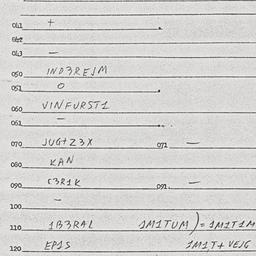 041 +
042
043 —
050 IND3REJM
051 O
060 VINFURST1
061 —
070 JUG+Z3X 071 —
080 KAN
090 C3R1K 091 —
—
100
110 1B3RAL 1M1TUM ) = 1M1T1M
120 EP1S 1M1T+VEJG